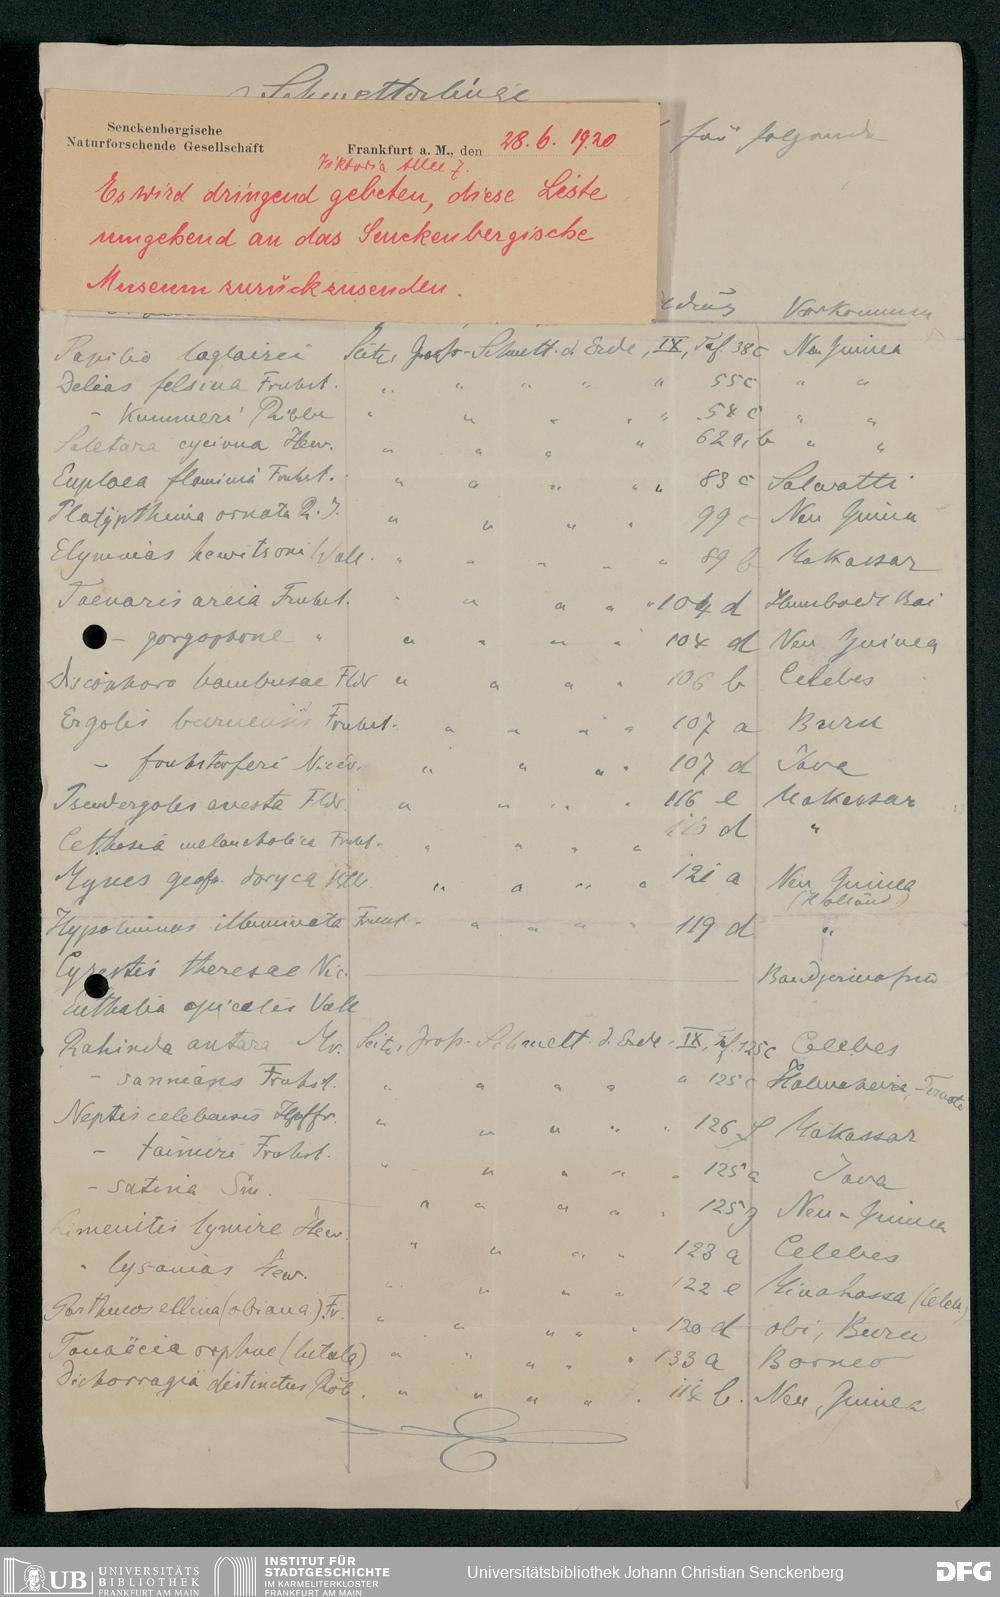 Schmetterlinge
für folgende
Senckenbergische
Naturforschende Gesellschaft
Frankfurt a. M., den 28. 6. 1920
Viktoria Allee 7.
Es wird dringend gebeten, diese Liste
umgehend an das Senckenbergische
Museum zurückzusenden.
Vorkommen
Papilio laglaizei Seitz, Groß-Schmett. d. Erde, IX, Taf. 38c Neu Guinea
Delias felsina Fruhst. " " " " " 55c " "
- Kummeri Ribbe " " " " " 54 c " "
Saletara cycinna Hew. " " " " 62 a, b " "
Euploea flaminia Fruhst. " " " " " 83 c Salwatti
Platypthima ornata R. J. " " " " 99 c Neu Guinea
Elymnias hewitsoni Wall. " " " " " 89 b Makassar
Taenaris areia Fruhst. " " " " " 104 d Humboldt Bai
- gorgophone " " " " " 104 d Neu Guinea
Discophora bambusae Fldr " " " " 106 b Celebes
Ergolis buruensis Fruhst. " " " " 107 a Buru
- fruhstorferi Nicév. " " " " 107 d Java
Pseudergolis avesta Fldr. " " " " 116 e Makassar
Cethosia melancholica Fruhst. " " " " d "
Mynes geoffr. doryca " " " " 121 a Neu Guinea
(Holländ.)
Hypolimnas illuminata Fruhst. " " " " 119 d "
Cyrestis theresae Nic.
Euthalia apicalis Voll
Rahinda antara Mr. Seitz, Groß-Schmett. d. Erde - IX, Taf. 125c Celebes
- sannians Fruhst. " " " " " 125 c Halmaheira, Ternate
Neptis celebensis Hpffr. " " " " " 126 f Makassar
- tamiri Fruhst. " " " " " 125 a Java
- satina Sm. " " " " " 125 g Neu-Guinea
Limenitis lymire Hew. " " " " 123 a Celebes
- lysanias Hew. " " " " 122 e Minahassa (Celeb.)
Parthenos ellina (obiana) Fr. " " " " 120 d Obi, Buru
Tanaëcia orphne (lutala) " " " " " 133 a Borneo
Dichorragia distinctus Röb. " " " " " 114 b. Neu Guinea
UB UNIVERSITÄTS
BIBLIOTHEK
FRANKFURT AM MAIN
INSTITUT FÜR
STADTGESCHICHTE
IM KARMELITERKLOSTER
FRANKFURT AM MAIN
Universitätsbibliothek Johann Christian Senckenberg
DFG